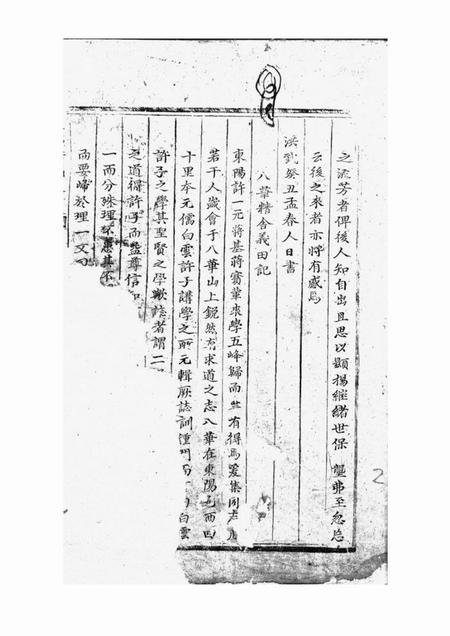 之流芳者俾後人知自出且思以顯揚繼緒世保 弗至忽忘
云後之來者亦將有感焉
洪武癸丑孟春人日書
八華精舍義田記
東陽許一元蔣基蔣賓華來學五峰歸而 有得焉爰集同志
若干人歲會于八華山上銳然有求道之志八華在東陽 西四
十里本元儒白雲許子講學之所元輯厥誌訓 門 白雲
許子之學其聖賢之學歟 者謂二
之道得許子而益尊信
一而分殊理不患其不
而要歸於理一又
2